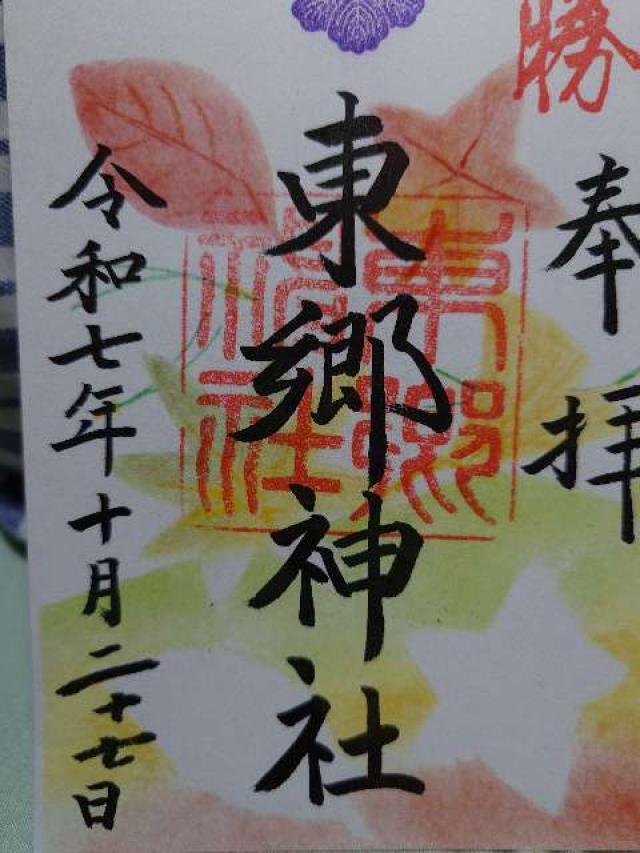 勝
奉拝
東郷神社
東郷神社
令和七年十月二十七日